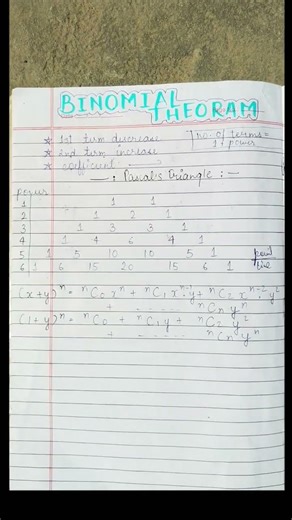 BINOMIAL
THEORAM
★ 1st term decrease
★ 2nd term increase
★ coefficient
no. of terms =
1 + power
—: Pascal's Triangle :—
power
1 1 1
2 1 2 1
3 1 3 3 1
4 1 4 6 4 1
5 1 5 10 10 5 1
6 1 6 15 20 15 6 1
(x+y)ⁿ = ⁿC₀ xⁿ + ⁿC₁ xⁿ⁻¹ y + ⁿC₂ xⁿ⁻² y²
+ ........ ⁿCₙ yⁿ
(1+y)ⁿ = ⁿC₀ + ⁿC₁ y + ⁿC₂ y²
+ ........ ⁿCₙ yⁿ